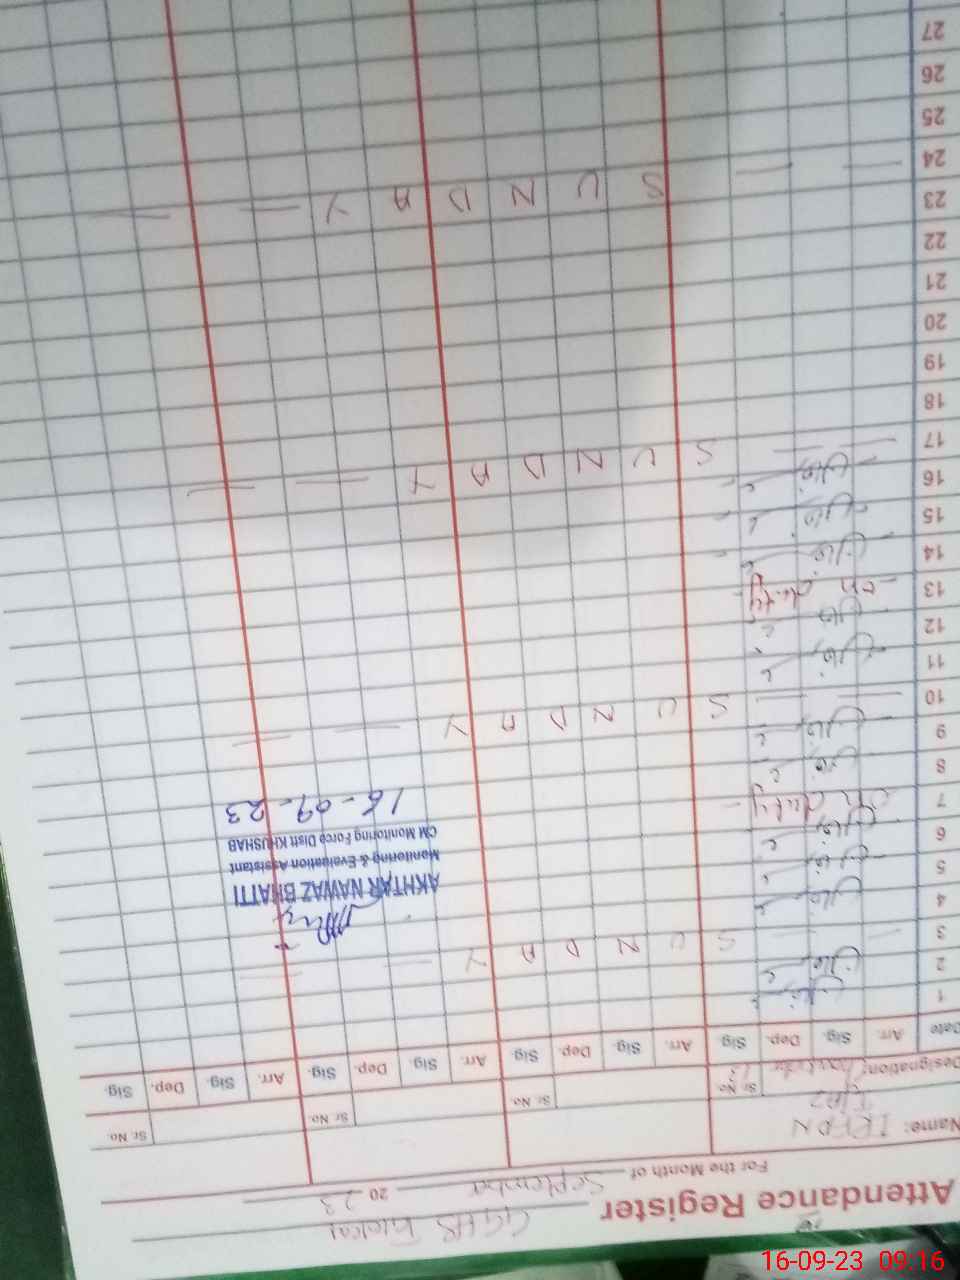 Attendance Register GGHS
For the Month of September 2023
Name: IRFAN
Designation: Sr No. Sr No. Sr No. Sr No.
Date Arr. Sig. Dep. Sig. Arr. Sig. Dep. Sig. Arr. Sig. Dep. Sig. Arr. Sig. Dep. Sig.
1
2
3 SUNDAY
4
5
6
7 on duty
8
9
10 SUNDAY
11
12
13 on duty
14
15
16
17 SUNDAY
18
19
20
21
22
23
24 SUNDAY
25
26
27
AKHTAR NAWAZ BHATTI
Monitoring & Evaluation Assistant
CM Monitoring Force Distt KHUSHAB
16-09-23
16-09-23 09:16